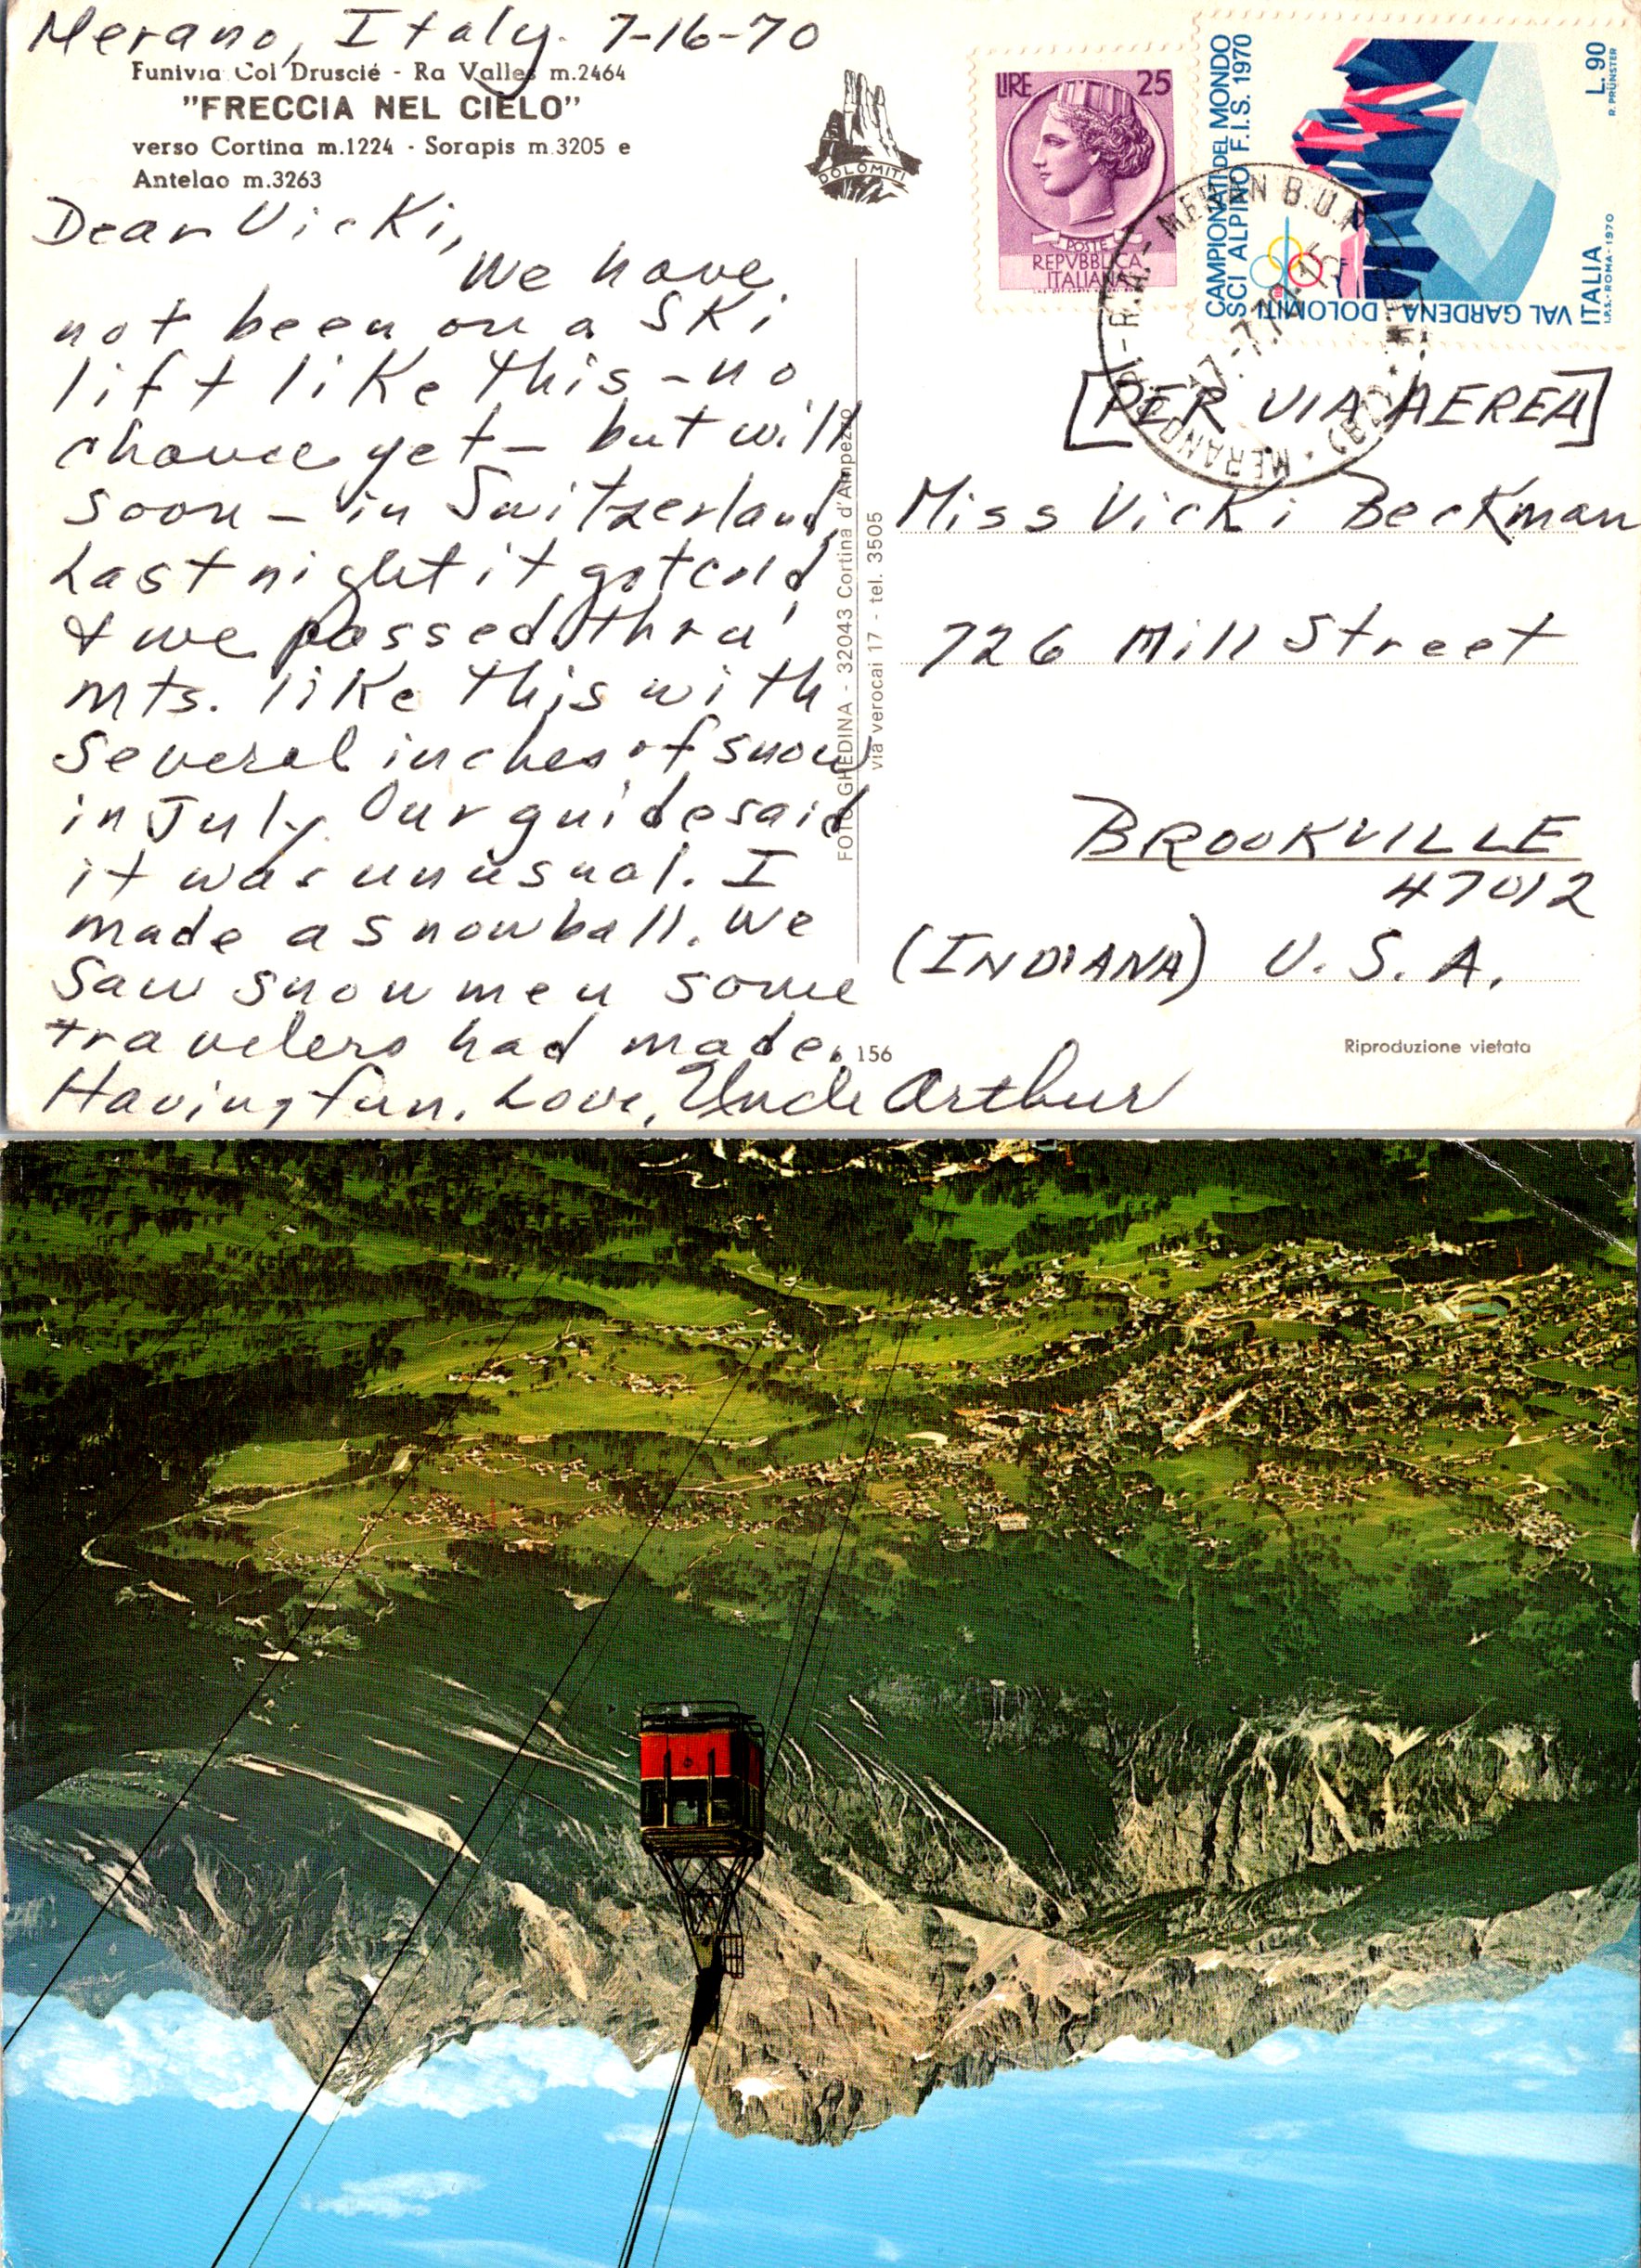 Merano, Italy. 7-16-70
Funivia Col Druscié - Ra Valles m.2464
"FRECCIA NEL CIELO"
verso Cortina m.1224 - Sorapis m.3205 e
Antelao m.3263
DOLOMITI
Dear Vicki,
We have
not been on a Ski
lift like this - no
chance yet - but will
soon - in Switzerland.
Last night it got cold
& we passed thru'
mts. like this with
several inches of snow
in July. Our guide said
it was unusual. I
made a snowball. We
saw snowmen some
travelers had made.
Having fun. Love, Uncle Arthur
156
FOTO GHEDINA - 32043 Cortina d'Ampezzo
via verocai 17 - tel. 3505
LIRE 25
POSTE
REPVBBLICA
ITALIANA
CAMPIONATI DEL MONDO
SCI ALPINO F.I.S. 1970
VAL GARDENA DOLOMITI
L. 90
R. PRÜNSTER
ITALIA
I.P.S.-ROMA-1970
MERANO
17.-7.70
[PER VIA AEREA]
Miss Vicki Beckman
726 Mill Street
BROOKVILLE
47012
(INDIANA) U. S. A.
Riproduzione vietata